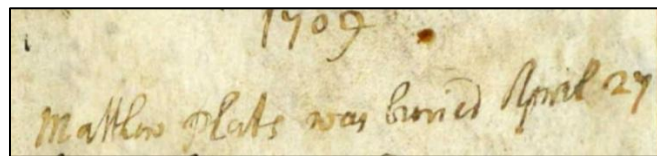 1709
Matthew Plats was buried April 27